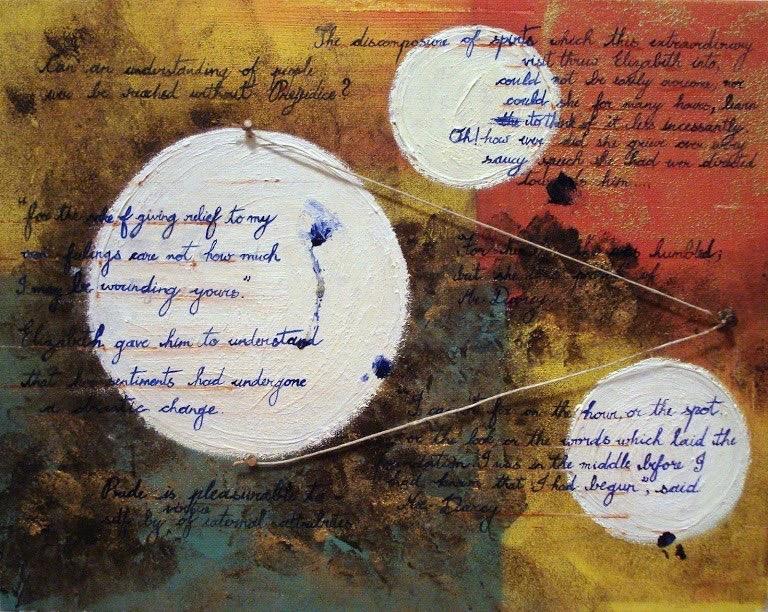 The discomposure of spirits which this extraordinary
visit threw Elizabeth into,
could not be easily overcome, nor
could she for many hours, learn
to think of it less incessantly.
Oh! how ever did she grieve over every
saucy speech she had ever directed
towards him ....
Can an understanding of people
ever be reached without Prejudice?
"for the sake of giving relief to my
own feelings care not how much
I may be wounding yours."
Elizabeth gave him to understand
that her sentiments had undergone
a drastic change.
For herself she was humbled;
but she was proud of
Mr. Darcy
"I can't fix on the hour, or the spot,
or the look or the words which laid the
foundation. I was in the middle before I
had known that I had begun", said
Mr. Darcy
Pride is pleasurable to
self by virtue of